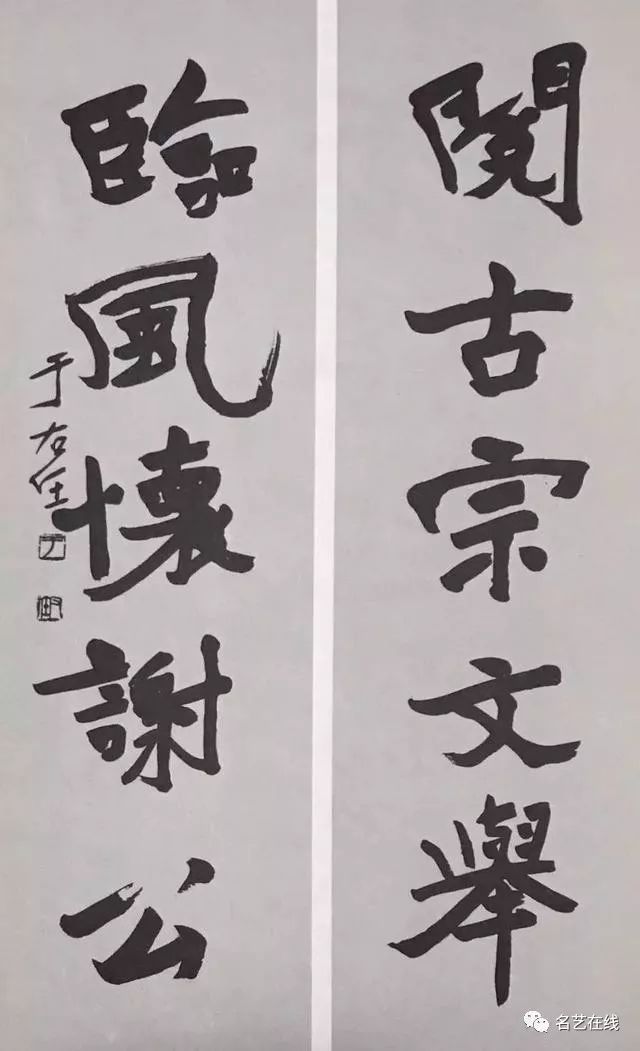 閱古宗文舉
臨風懷謝公
于右任
名艺在线